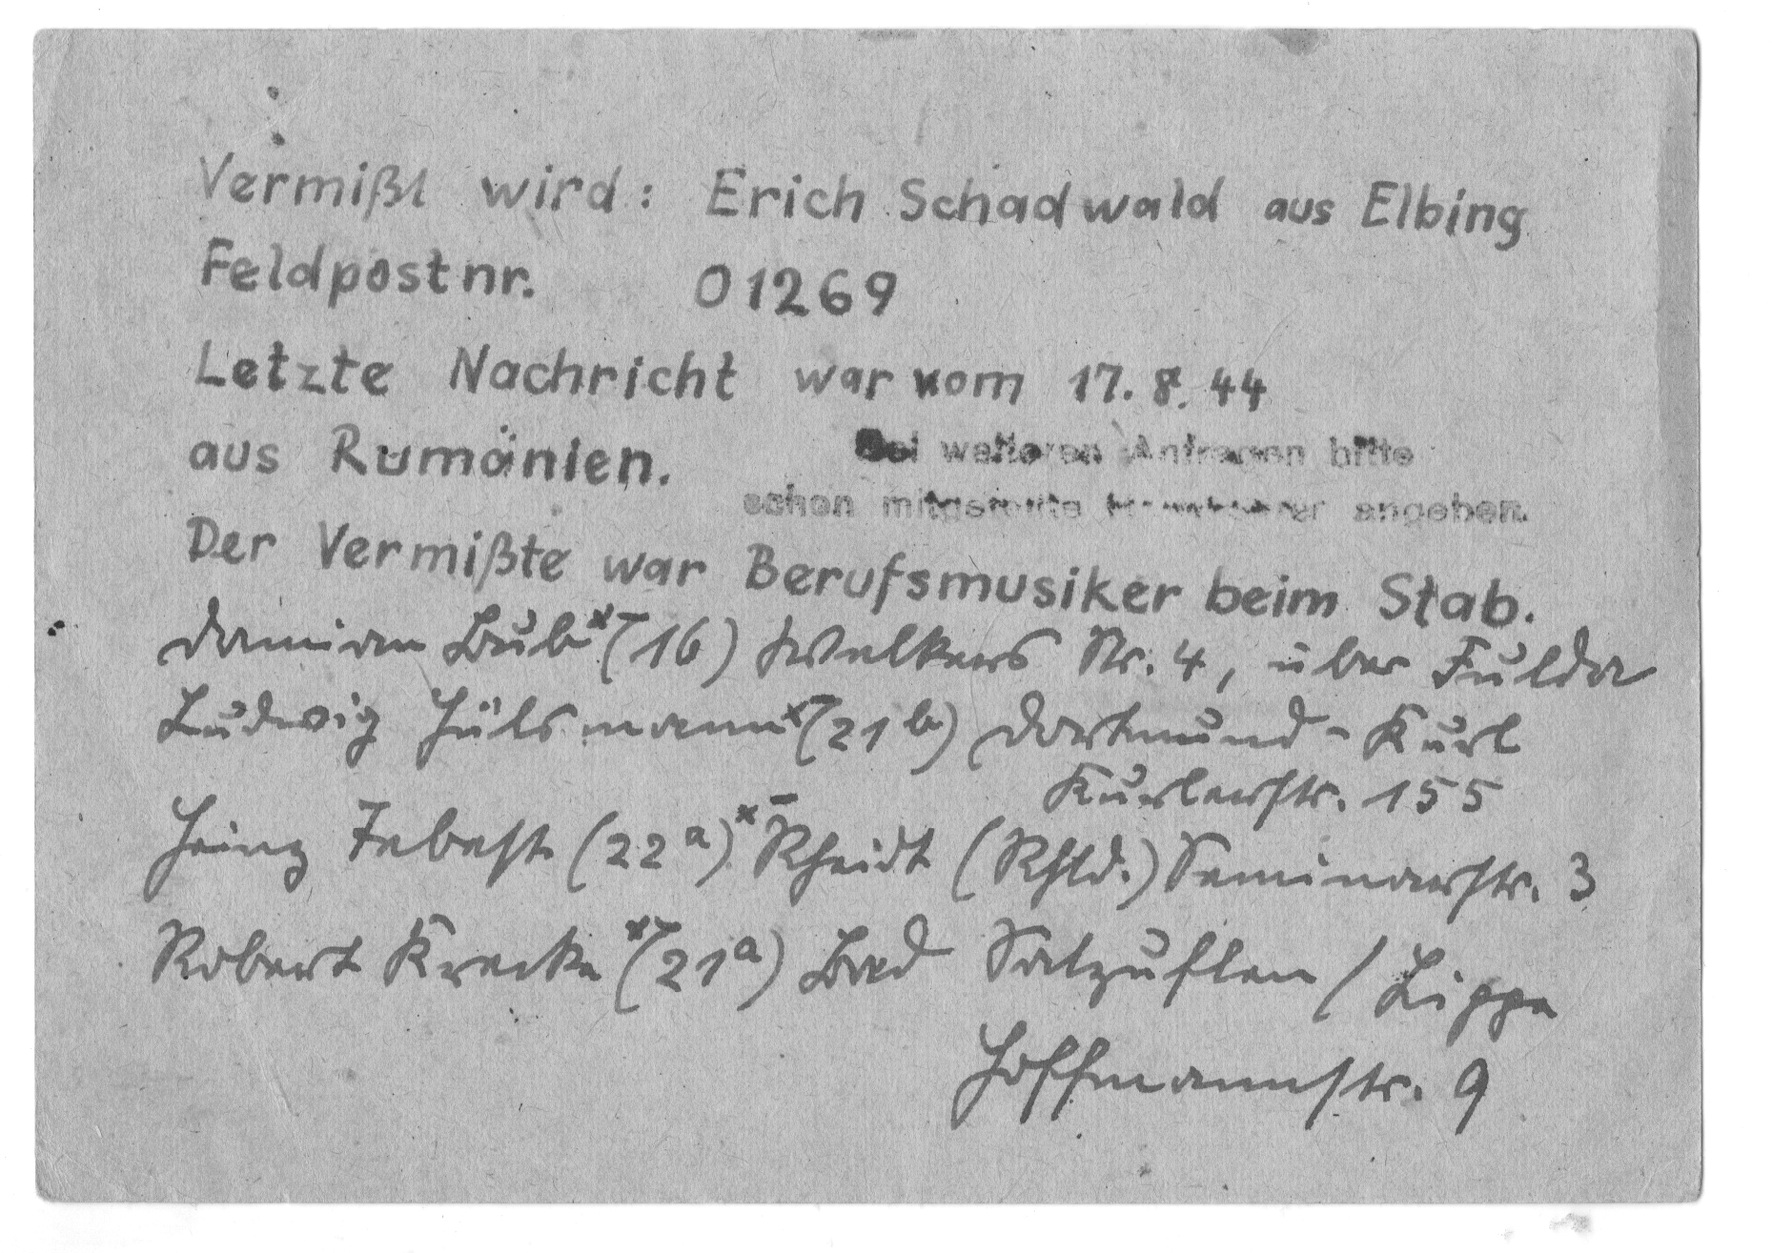 Vermißt wird: Erich Schadwald aus Elbing
Feldpostnr. 01269
Letzte Nachricht war vom 17. 8. 44
aus Rumänien.
Bei weiteren Anfragen bitte
schon mitgeteilte angeben.
Der Vermißte war Berufsmusiker beim Stab.
Damian Bub (16) Welkers Nr. 4, über Fulda
Ludwig Hülsmann (21b) Dortmund-Kurl
Kurlerstr. 155
Heinz (22a) Rheidt (Rhld.) Seminarstr. 3
Robert Krecke (21a) Bad Salzuflen / Lippe
Hoffmannstr. 9